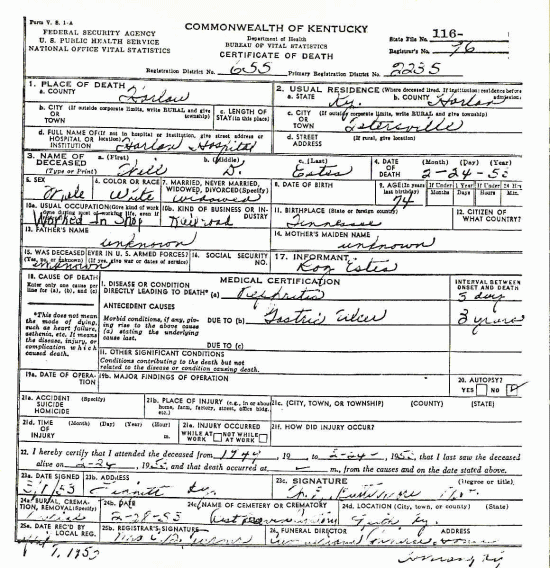 Form V. S. 1-A
COMMONWEALTH OF KENTUCKY
FEDERAL SECURITY AGENCY
U. S. PUBLIC HEALTH SERVICE
NATIONAL OFFICE VITAL STATISTICS
Department of Health
BUREAU OF VITAL STATISTICS
CERTIFICATE OF DEATH
State File No. 116-
Registrar's No. 76
Registration District No. 655 Primary Registration District No. 2235
1. PLACE OF DEATH
a. COUNTY Harlan
2. USUAL RESIDENCE (Where deceased lived. If institution: residence before admission)
a. STATE Ky. b. COUNTY Harlan
b. CITY (If outside corporate limits, write RURAL and give township) OR TOWN
c. LENGTH OF STAY (in this place)
c. CITY (If outside corporate limits, write RURAL and give township) OR TOWN
d. FULL NAME OF (If not in hospital or institution, give street address or location) HOSPITAL OR INSTITUTION Harlan Hospital
d. STREET ADDRESS
3. NAME OF DECEASED (Type or Print)
a. (First) Will b. (Middle) D. c. (Last) Estes
4. DATE OF DEATH (Month) (Day) (Year) 2-24-53
5. SEX Male
6. COLOR OR RACE White
7. MARRIED, NEVER MARRIED, WIDOWED, DIVORCED (Specify) widowed
8. DATE OF BIRTH
9. AGE (In years last birthday) 74 If Under 1 Year Months Days If Under 24 Hrs Hours Min.
10a. USUAL OCCUPATION (Give kind of work done during most of working life, even if Worked In Shop
10b. KIND OF BUSINESS OR INDUSTRY Railroad
11. BIRTHPLACE (State or foreign country) Tennessee
12. CITIZEN OF WHAT COUNTRY?
13. FATHER'S NAME unknown
14. MOTHER'S MAIDEN NAME unknown
15. WAS DECEASED EVER IN U. S. ARMED FORCES? (Yes, no, or unknown) (If yes, give war or dates of service) unknown
16. SOCIAL SECURITY NO.
17. INFORMANT Roy Estes
18. CAUSE OF DEATH
Enter only one cause per line for (a), (b), and (c)
*This does not mean the mode of dying, such as heart failure, asthenia, etc. It means the disease, injury, or complication which caused death.
MEDICAL CERTIFICATION
INTERVAL BETWEEN ONSET AND DEATH
I. DISEASE OR CONDITION DIRECTLY LEADING TO DEATH* (a) 3 day
ANTECEDENT CAUSES
Morbid conditions, if any, giving rise to the above cause (a) stating the underlying cause last.
DUE TO (b) Gastric Ulcer 3 years
DUE TO (c)
II. OTHER SIGNIFICANT CONDITIONS
Conditions contributing to the death but not related to the disease or condition causing death.
19a. DATE OF OPERATION
19b. MAJOR FINDINGS OF OPERATION
20. AUTOPSY? YES NO
21a. ACCIDENT SUICIDE HOMICIDE (Specify)
21b. PLACE OF INJURY (e.g., in or about home, farm, factory, street, office bldg. etc.)
21c. (CITY, TOWN, OR TOWNSHIP) (COUNTY) (STATE)
21d. TIME OF INJURY (Month) (Day) (Year) (Hour) m.
21e. INJURY OCCURRED WHILE AT WORK NOT WHILE AT WORK
21f. HOW DID INJURY OCCUR?
22. I hereby certify that I attended the deceased from 19 to 2-24-, 195 , that I last saw the deceased
alive on 2-24, 195 , and that death occurred at m., from the causes and on the date stated above.
23a. DATE SIGNED 23b. ADDRESS Ky. 23c. SIGNATURE (Degree or title)
24a. BURIAL, CREMATION, REMOVAL (Specify)
24b. DATE 2-28-53
24c. NAME OF CEMETERY OR CREMATORY
24d. LOCATION (City, town, or county) (State) Ky.
25a. DATE REC'D BY LOCAL REG.
25b. REGISTRAR'S SIGNATURE
26. FUNERAL DIRECTOR ADDRESS